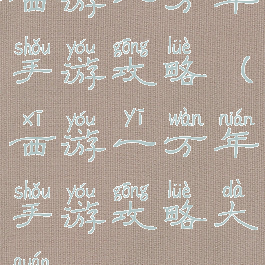 西游一万年
shǒu yóu gōng lüè
手游攻略（
xī yóu yī wàn nián
西游一万年
shǒu yóu gōng lüè dà
手游攻略大
quán